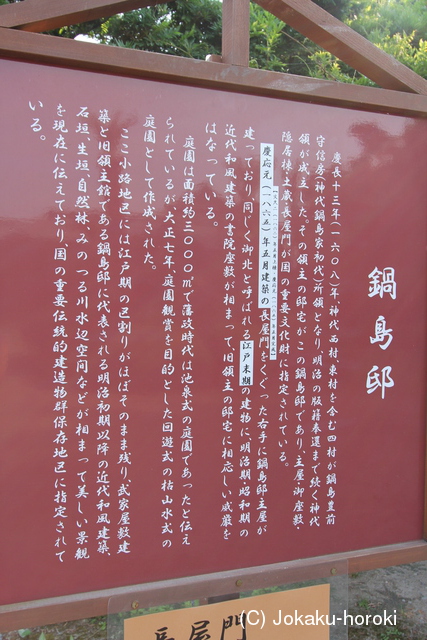 鍋島邸
慶長十三年(一六〇八)年、神代西村、東村を含む四村が鍋島豊前
守信房(神代鍋島家初代)所領となり、明治の版籍奉還まで続く神代
領が成立した。その領主の邸宅がこの鍋島邸であり、主屋・御座敷・
隠居棟・土蔵・長屋門が国の重要文化財に指定されている。
慶応元(一八六五)年五月建築の長屋門をくぐった右手に鍋島邸主屋が
建っており、同じく御北と呼ばれる江戸末期の建物に、明治期・昭和期の
近代和風建築の書院座敷が相まって、旧領主の邸宅に相応しい威厳を
はなっている。
庭園は面積約三〇〇〇㎡で藩政時代は池泉式の庭園であったと伝え
られているが、大正七年、庭園観賞を目的とした回遊式の枯山水式の
庭園として作成された。
ここ小路地区には江戸期の区割りがほぼそのまま残り、武家屋敷建
築と旧領主館である鍋島邸に代表される明治初期以降の近代和風建築、
石垣、生垣、自然林、みのつる川水辺空間などが相まって美しい景観
を現在に伝えており、国の重要伝統的建造物群保存地区に指定されて
いる。
長屋門
(C) Jokaku-horoki